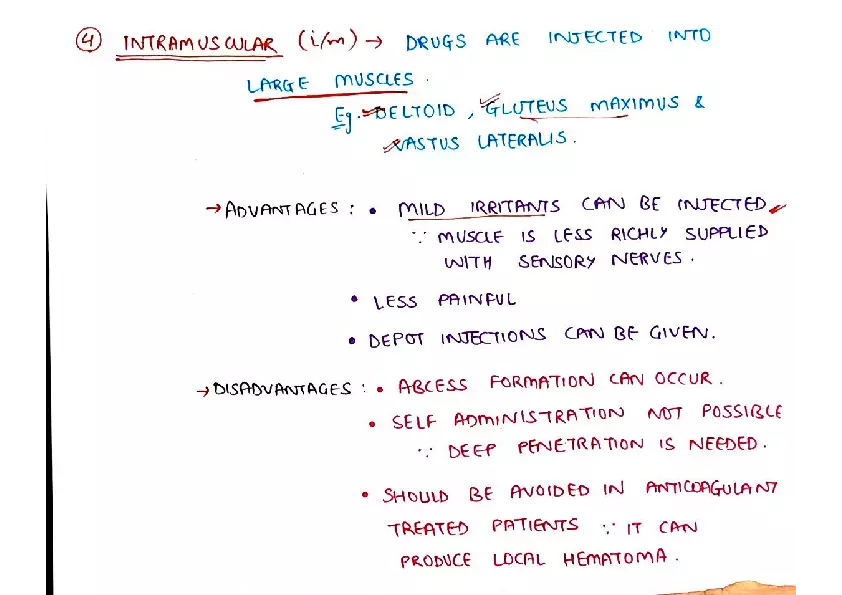 ④ INTRAMUSCULAR (i/m) → DRUGS ARE INJECTED INTO
LARGE MUSCLES.
Eg. DELTOID, GLUTEUS MAXIMUS &
VASTUS LATERALIS.
→ ADVANTAGES : • MILD IRRITANTS CAN BE INJECTED
∵ MUSCLE IS LESS RICHLY SUPPLIED
WITH SENSORY NERVES.
• LESS PAINFUL
• DEPOT INJECTIONS CAN BE GIVEN.
→ DISADVANTAGES : • ABCESS FORMATION CAN OCCUR.
• SELF ADMINISTRATION NOT POSSIBLE
∵ DEEP PENETRATION IS NEEDED.
• SHOULD BE AVOIDED IN ANTICOAGULANT
TREATED PATIENTS ∵ IT CAN
PRODUCE LOCAL HEMATOMA.